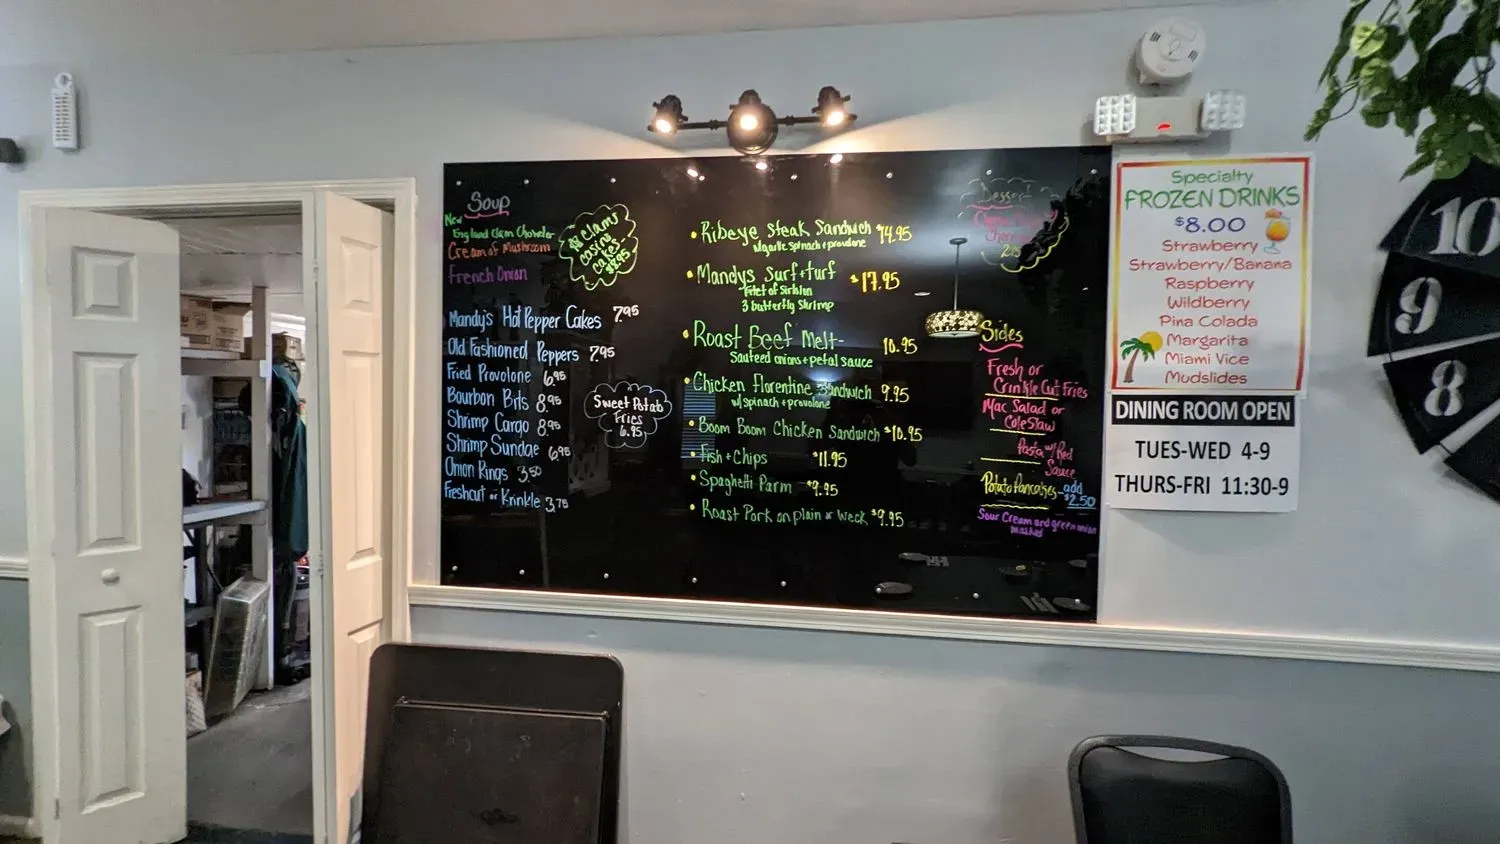 Soup
New
England Clam Chowder
Cream of Mushroom
French Onion
Clams
casino
cakes
$8.95
Mandy's Hot Pepper Cakes 7.95
Old Fashioned Peppers 7.95
Fried Provolone 6.95
Bourbon Bits 8.95
Shrimp Cargo 8.95
Shrimp Sundae 6.95
Onion Rings 3.50
Freshcut or Krinkle 3.75
Sweet Potato
Fries
6.95
Ribeye Steak Sandwich 14.95
W/garlic Spinach + provolone
Mandys Surf + turf $17.95
Filet of Sirloin
3 butterfly Shrimp
Roast Beef Melt- 10.95
Sauteed onions + petal sauce
Chicken Florentine Sandwich 9.95
w/ spinach + provolone
Boom Boom Chicken Sandwich $10.95
Fish + Chips $11.95
Spaghetti Parm $9.95
Roast Pork on plain or Weck $9.95
Dessert
Sides
Fresh or
Crinkle Cut Fries
Mac Salad or
Cole Slaw
Pasta w/ Red
Sauce
Potato Pancakes - add
$2.50
Sour Cream and green onion
mashed
Specialty
FROZEN DRINKS
$8.00
Strawberry
Strawberry/Banana
Raspberry
Wildberry
Pina Colada
Margarita
Miami Vice
Mudslides
DINING ROOM OPEN
TUES-WED 4-9
THURS-FRI 11:30-9
10
9
8